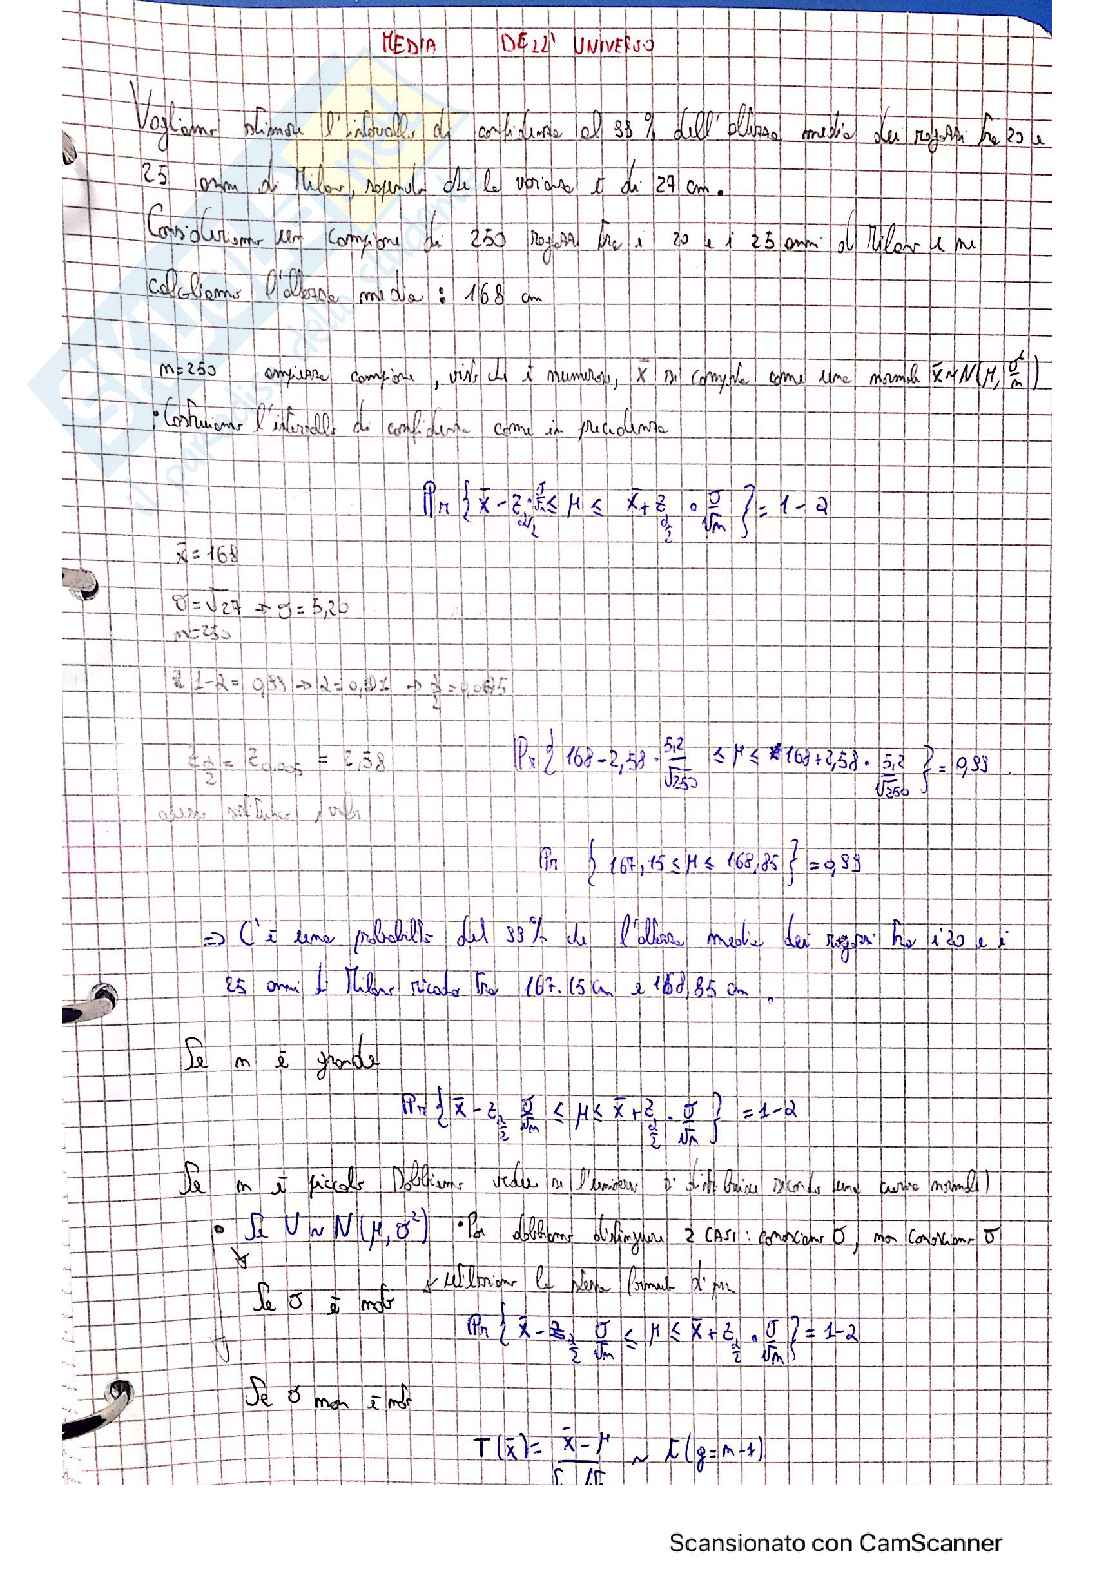 MEDIA DELL' UNIVERSO
Vogliamo stimare l'intervallo di confidenza al 99% dell'altezza media dei ragazzi tra 20 e
25 anni di Milano, sapendo che la varianza è di 27 cm.
Consideriamo un campione di 250 ragazzi tra i 20 e i 25 anni di Milano e ne
calcoliamo l'altezza media : 168 cm
n=250 ampiezza campione, visto che è numeroso, x̄ si comporta come una normale x̄~N(μ, σ²/n)
• Costruiamo l'intervallo di confidenza come in precedenza
Pr { x̄ - z α/2 · σ/√n ≤ μ ≤ x̄ + z α/2 · σ/√n } = 1-α
x̄ = 168
σ=√27 → σ=5,20
n=250
1-α = 0,99 → α=0,01 → α/2=0,005
z α/2 = z 0,005 = 2,58
Pr { 168-2,58 · 5,2/√250 ≤ μ ≤ 168+2,58 · 5,2/√250 } = 0,99
Pr { 167,15 ≤ μ ≤ 168,85 } = 0,99
⇒ C'è una probabilità del 99% che l'altezza media dei ragazzi tra i 20 e i
25 anni di Milano ricada tra 167.15 cm e 168,85 cm.
Se n è grande
Pr { x̄ - z α/2 σ/√n ≤ μ ≤ x̄ + z α/2 · σ/√n } = 1-α
Se n è piccolo dobbiamo vedere se l'universo si distribuisce secondo una curva normale)
• Se U ~ N(μ, σ²) • Poi dobbiamo distinguere 2 CASI: conosciamo σ, non conosciamo σ
Se σ è noto utilizziamo la stessa formula di prima
Pr { x̄ - z α/2 σ/√n ≤ μ ≤ x̄ + z α/2 · σ/√n } = 1-α
Se σ non è noto
T(x̄) = x̄ - μ ~ t(g=n-1)
Scansionato con CamScanner